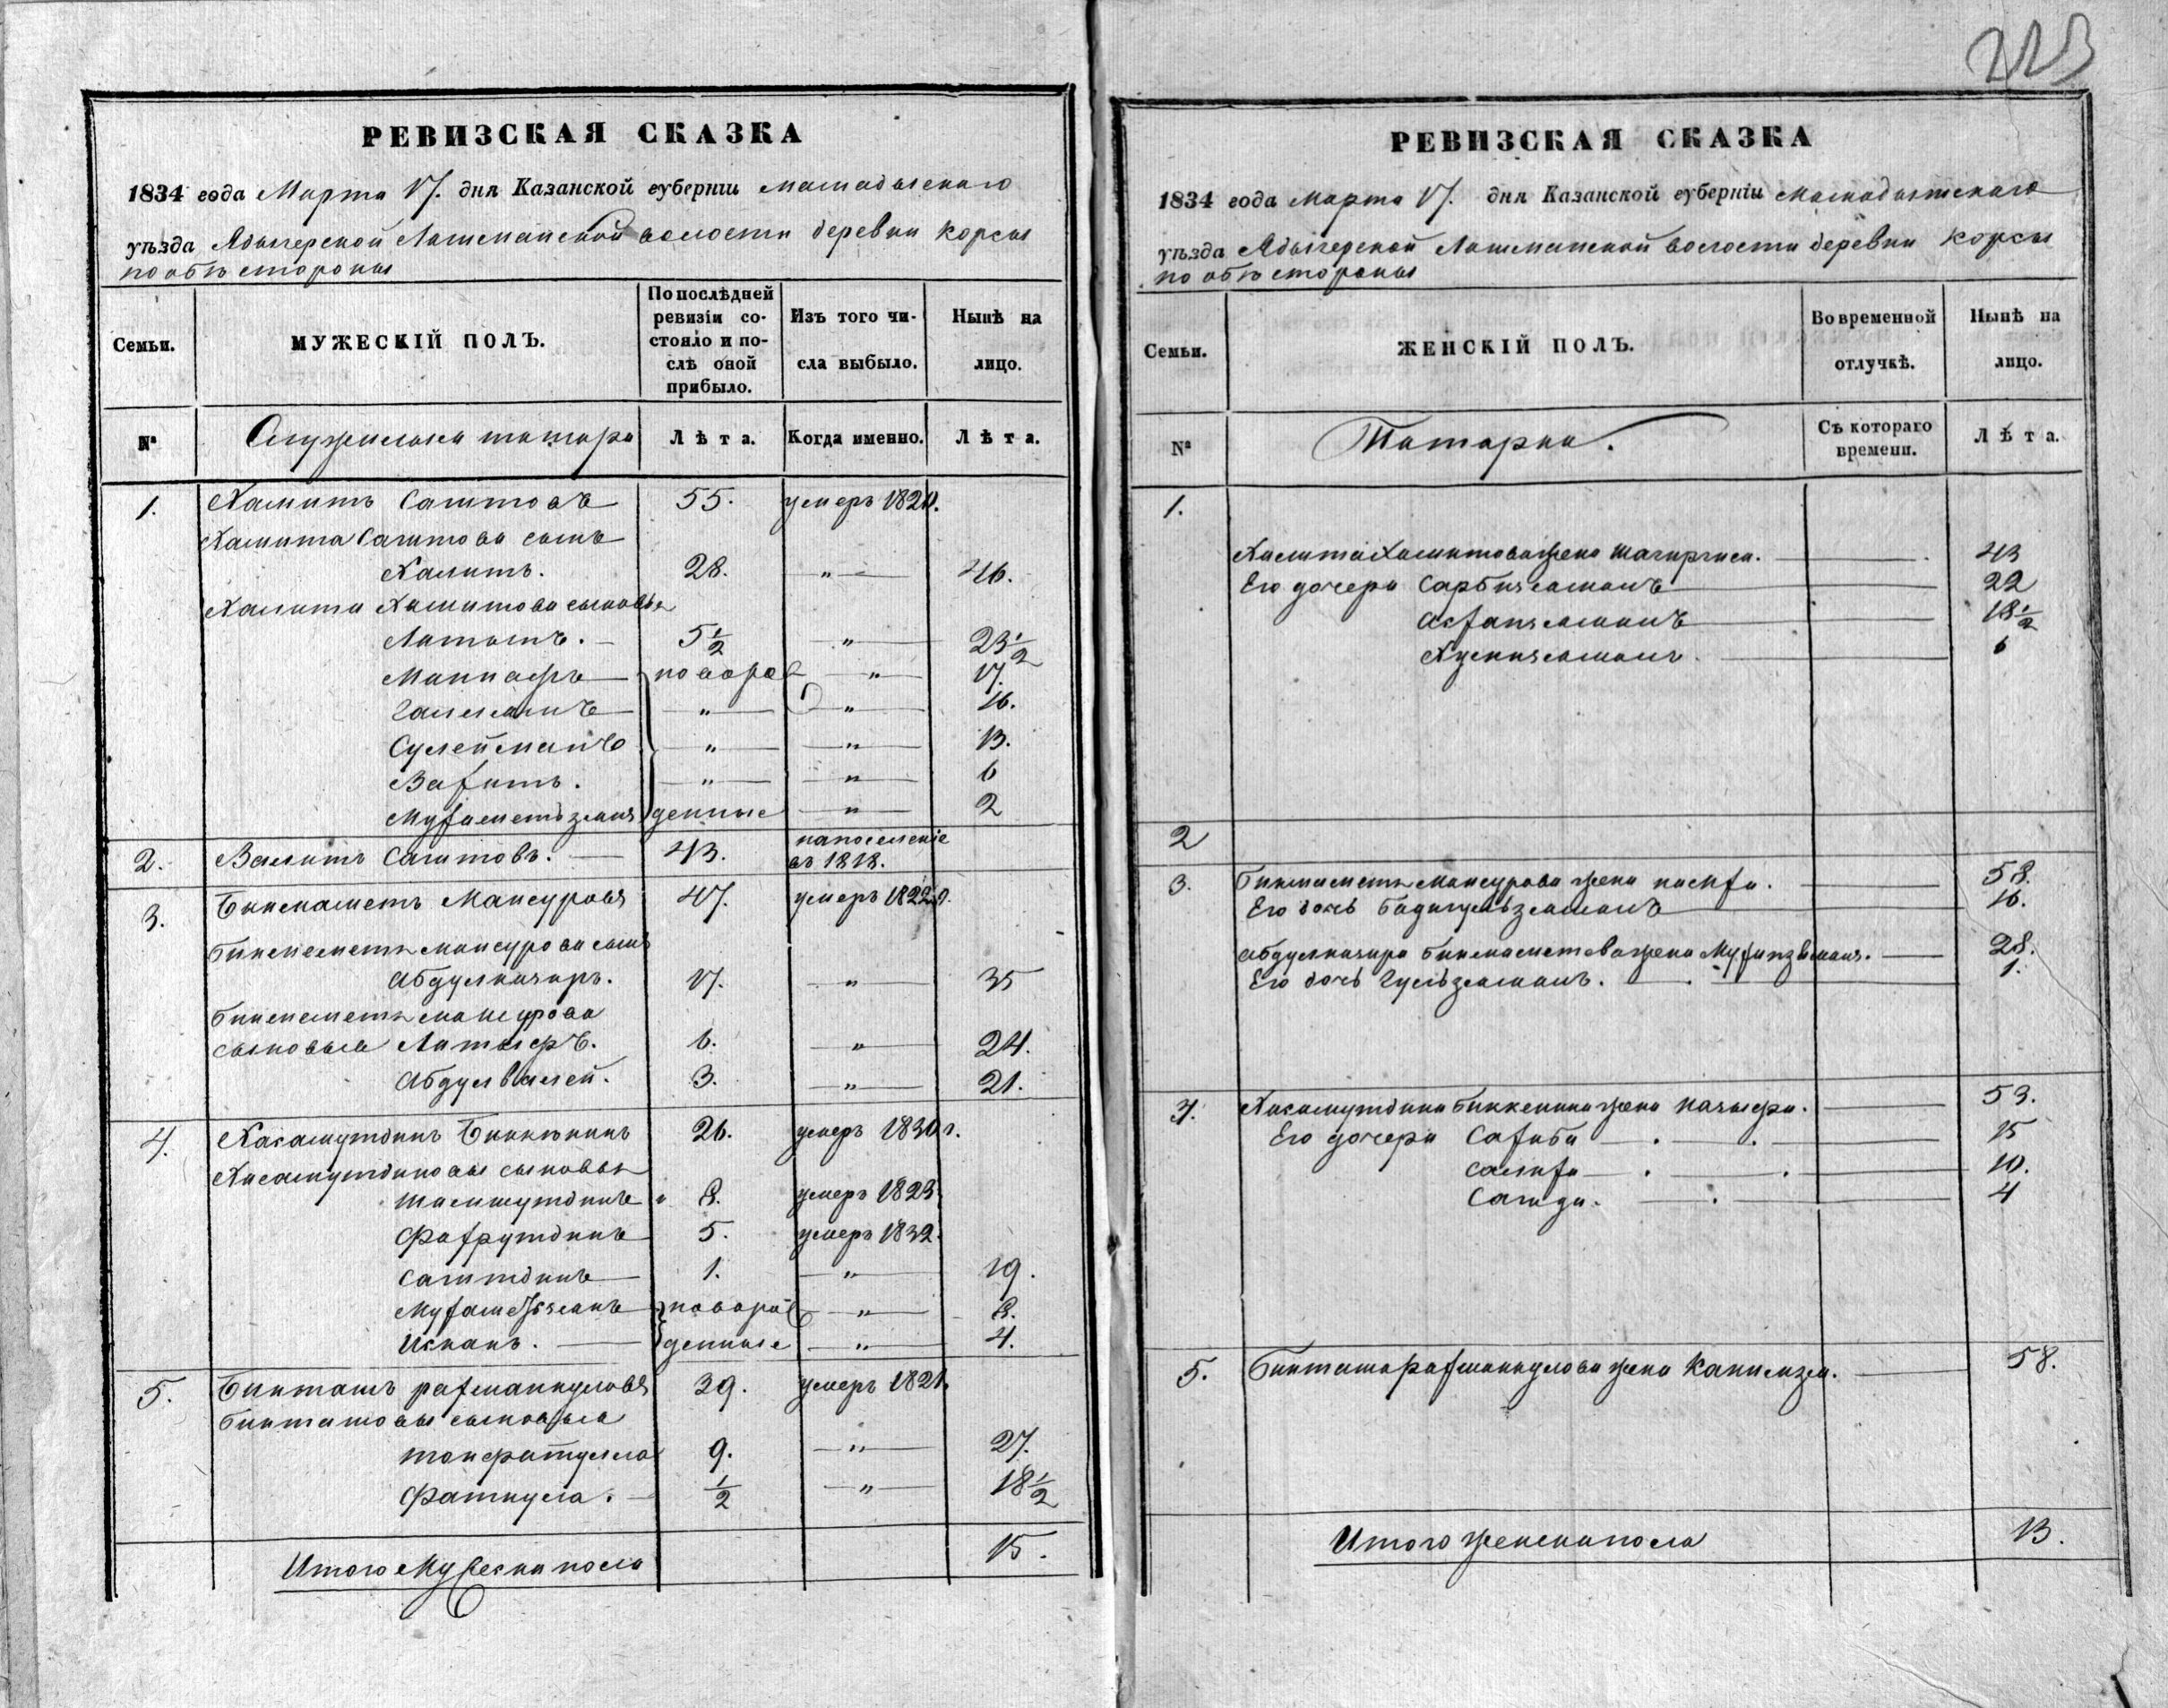 223
РЕВИЗСКАЯ СКАЗКА
1834 года Марта 17. дня Казанской губерніи мамадышскаго
уѣзда Адыгерской Лашманской волости деревни Корсы
по обѣ стороны
Семьи.
МУЖЕСКІЙ ПОЛЪ.
По послѣдней ревизіи состояло и послѣ оной прибыло.
Изъ того числа выбыло.
Нынѣ на лицо.
№
Служилыя татара
Лѣта.
Когда именно.
Лѣта.
1. Хамитъ Сагитовъ 55. умеръ 1820.
Хамита Сагитова сынъ
Халитъ. 28. " 46.
Халита Хамитова сыновья
Латыпъ. 5½ " 23½
Маннафъ повораж " 17.
" " 16.
Сулейманъ " " 13.
Вагитъ. " " 6
Мухаметьзянъ денные " 2
2. Валитъ Сагитовъ. 43. на поселеніе
въ 1818.
3. Бикмаметь Мансуровъ 47. умеръ 1822.
Бикмаметя Мансурова сынъ
Абдулкагиръ. 17. " 35
Бикмаметя Мансурова
сыновья Латыфъ. 6. " 24.
Абдулвалей. 3. " 21.
4. Хисамутдинъ Биккининъ 26. умеръ 1830г.
Хисамутдиновы сыновья
Шамшутдинъ 8. умеръ 1823.
Фахрутдинъ 5. умеръ 1832.
Сагитдинъ 1. " 19.
Мухаметзянъ новорож " 8.
Исканъ. денные " 4.
5. Бикташъ рахманкуловъ 39. умеръ 1821.
Бикташовы сыновья
9. " 27.
Фаткулла. ½ " 18½
Итого Мужеска пола 15.
РЕВИЗСКАЯ СКАЗКА
1834 года марта 17. дня Казанской губерніи Мамадышскаго
уѣзда Адыгерской Лашманской волости деревни Корсы
по обѣ стороны
Семьи.
ЖЕНСКІЙ ПОЛЪ.
Во временной отлучкѣ.
Нынѣ на лицо.
№
Татарки.
Съ котораго времени.
Лѣта.
1.
Халита Хамитова жена 43
Его дочери Сарбиямалъ 22
18½
Хуснизямалъ. 6
2
3. Бикмаметя Мансурова жена насиха. 58.
Его дочь Бадигульзямалъ 16.
Абдулкагира Бикмаметева жена 28.
Его дочь Гульзямалъ. 1.
4. Хисамутдина Биккинина жена 53.
Его дочери Сахиба 15
Салиха 10.
Сагида. 4
5. Бикташа Рахманкулова жена 58.
Итого женска пола 13.